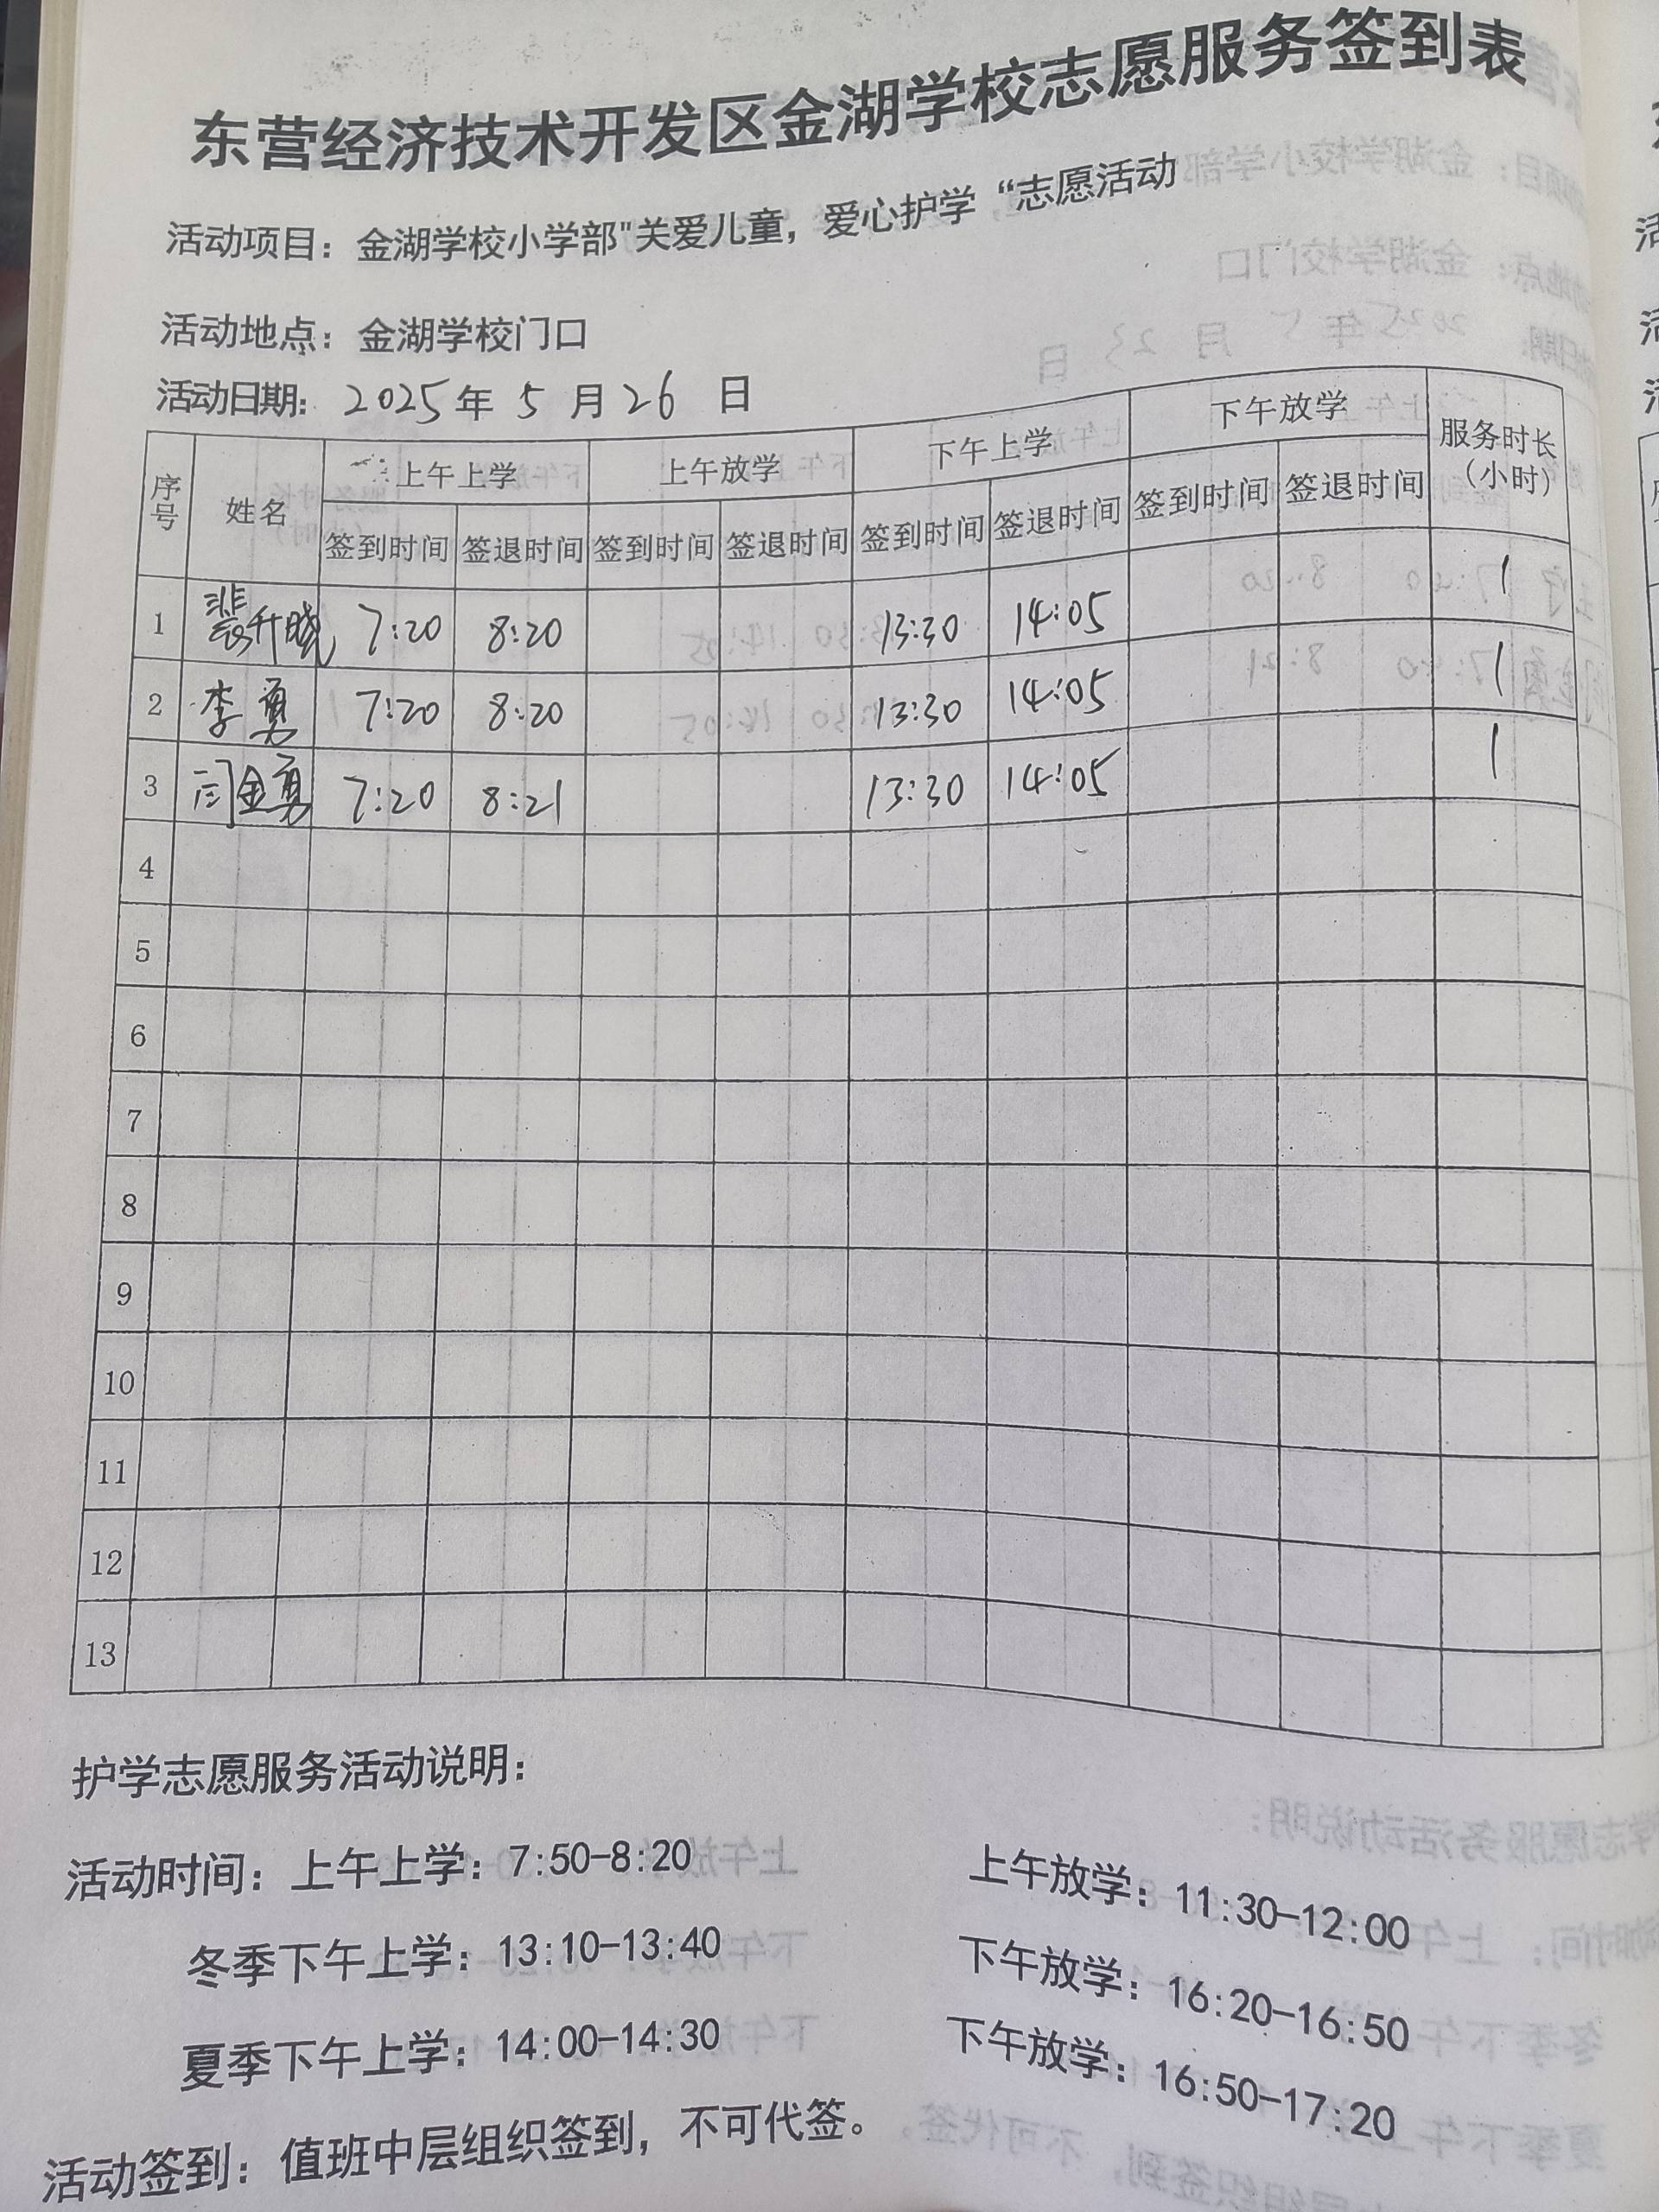 东营经济技术开发区金湖学校志愿服务签到表
活动项目：金湖学校小学部"关爱儿童，爱心护学“志愿活动
活动地点：金湖学校门口
活动日期：2025年 5 月 26 日
序号 姓名 上午上学 上午放学 下午上学 下午放学 服务时长（小时）
签到时间 签退时间 签到时间 签退时间 签到时间 签退时间 签到时间 签退时间
1 裴升晓 7:20 8:20 13:30 14:05 1
2 李勇 7:20 8:20 13:30 14:05 1
3 闫金勇 7:20 8:21 13:30 14:05 1
4
5
6
7
8
9
10
11
12
13
护学志愿服务活动说明：
活动时间：上午上学：7:50-8:20 上午放学：11:30-12:00
冬季下午上学：13:10-13:40 下午放学：16:20-16:50
夏季下午上学：14:00-14:30 下午放学：16:50-17:20
活动签到：值班中层组织签到，不可代签。